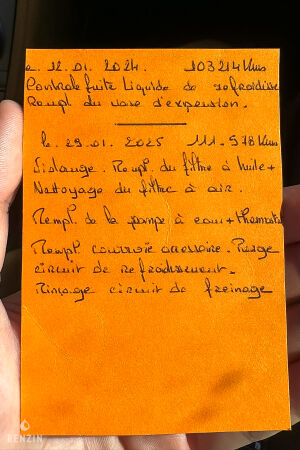 le. 12.01.2024. 103214 Kms
Controle fuite Liquide de refroidisse
Rempl du vase d'expension.
le. 29.01.2025 111.978 Kms
Vidange. Rempl. du filtre à huile +
Nettoyage du filtre à air.
Rempl. de la pompe à eau + thermosta
Rempl. courroie accessoire. Purge
circuit de refroidissement.
Rinçage circuit de freinage
BENZIN